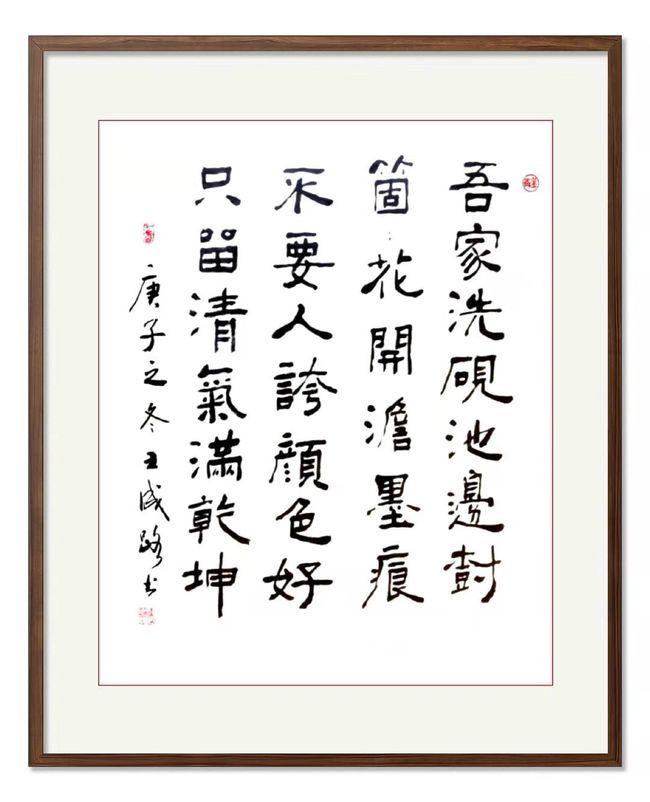 吾家洗硯池邊尌
箇々花開澹墨痕
不要人誇顏色好
只留清氣滿乾坤
庚子之冬王成路书